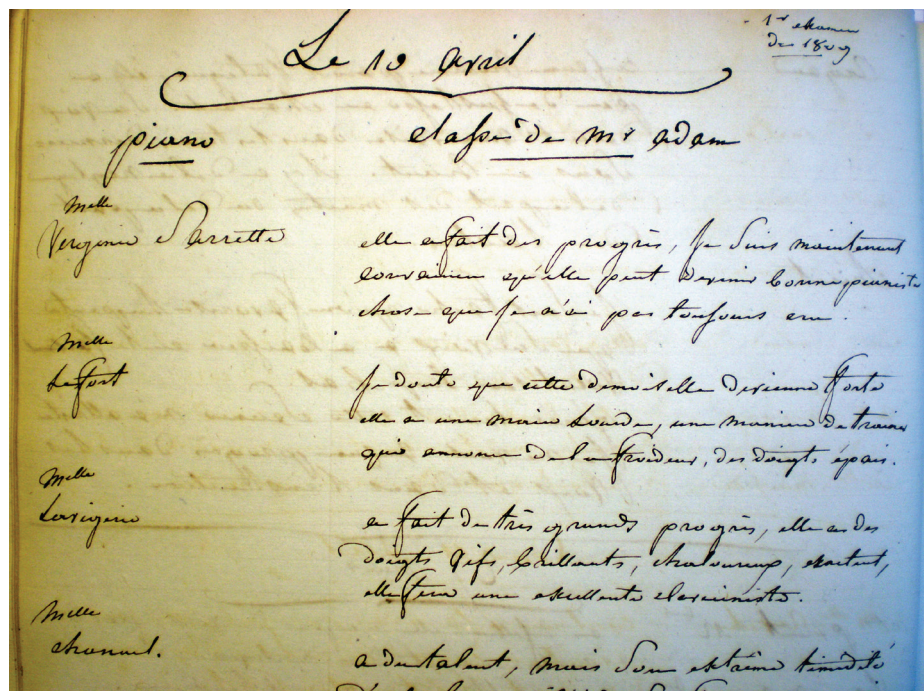 1er examen
de 1809
Le 10 avril
piano classe de Mr adam
Melle
Virginie Sarrette elle a fait des progrès, je suis maintenant
convaincu qu'elle peut devenir bonne pianiste
chose que je n'ai pas toujours cru.
Melle
Lefort je doute que cette demoiselle devienne forte
elle a une main lourde, une manière de trainer
qui annonce de la froideur, des doigts épais.
Melle
Lavigne a fait de très grands progrès, elle a des
doigts vifs, brillants, chaleureux,
elle fera une excellente claveciniste.
Melle
a du talent, mais son extrême timidité